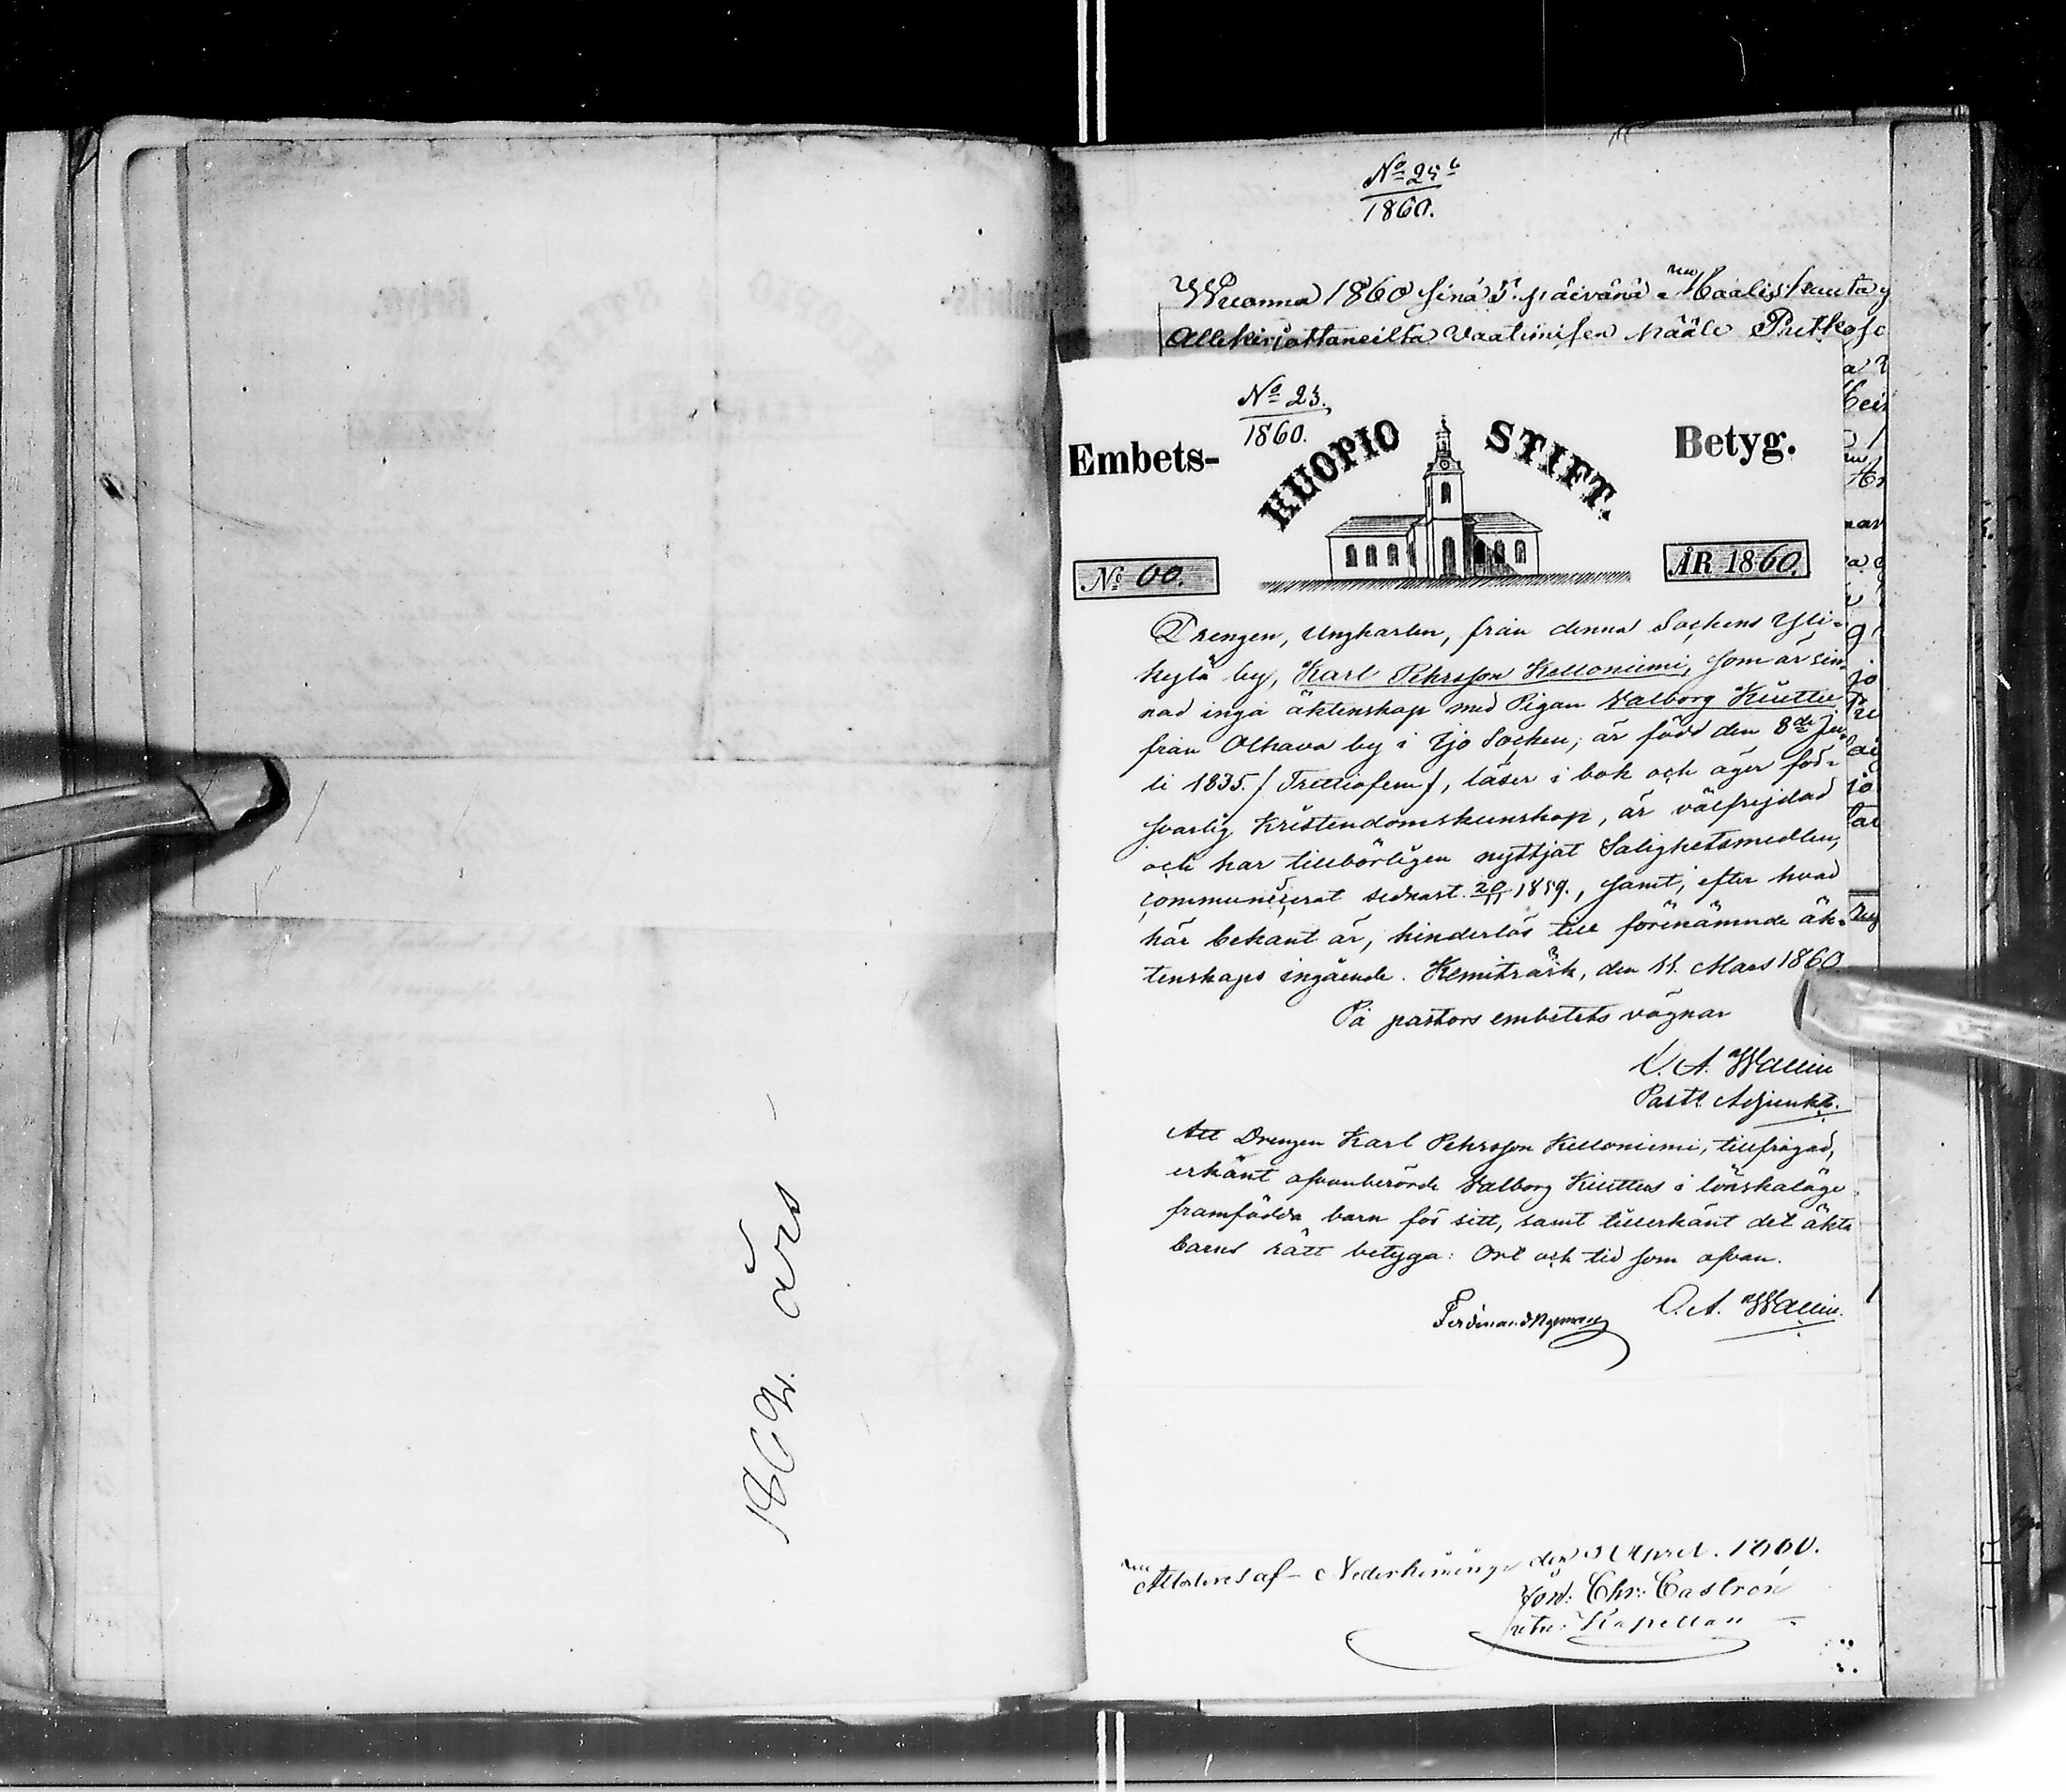 1860. års
No 25b
1860.
Wuonna 1860 sinä 5. päivänä Maaliskuuta
Allekirjottaneilta Vaatimisen päälle
No 23.
1860.
Embets- KUOPIO STIFT. Betyg.
No 00. ÅR 1860.
Drengen, Ungkarlen, från denna Sockens Yli-
kylä by, Karl Pehrsson Kelloniemi, som är sin-
nad ingå äktenskap med Pigan Valborg Kiuttu
från Olhava by i Ijo Socken, är född den 8de Ju-
li 1835. / Trettiofem /, läser i bok och äger för-
svarlig Kristendomskunskap, är välfrejdad
och har tillbörligen nyttjat Salighetsmedlen,
communicerat sednast 20/11 1859., samt, efter hvad
här bekant är, hinderlös till förenämnde äk-
tenskaps ingående. Kemiträsk, den 11. Mars 1860
På pastors embetets vägnar
O. A. Wallin
Past. Adjunkt.
Att Drengen Karl Pehrsson Kelloniemi, tillfrågad,
erkänt ofvanberörde Valborg Kiuttus i lönskaläge
framfödda barn för sitt, samt tillerkänt det äkta
barns rätt betyga: Ort och tid som ofvan.
Ferdinand Nyman O. A. Wallin.
Attesteres af Nederkiminge den April. 1860.
Joh: Chr: Castrén
Kapellan